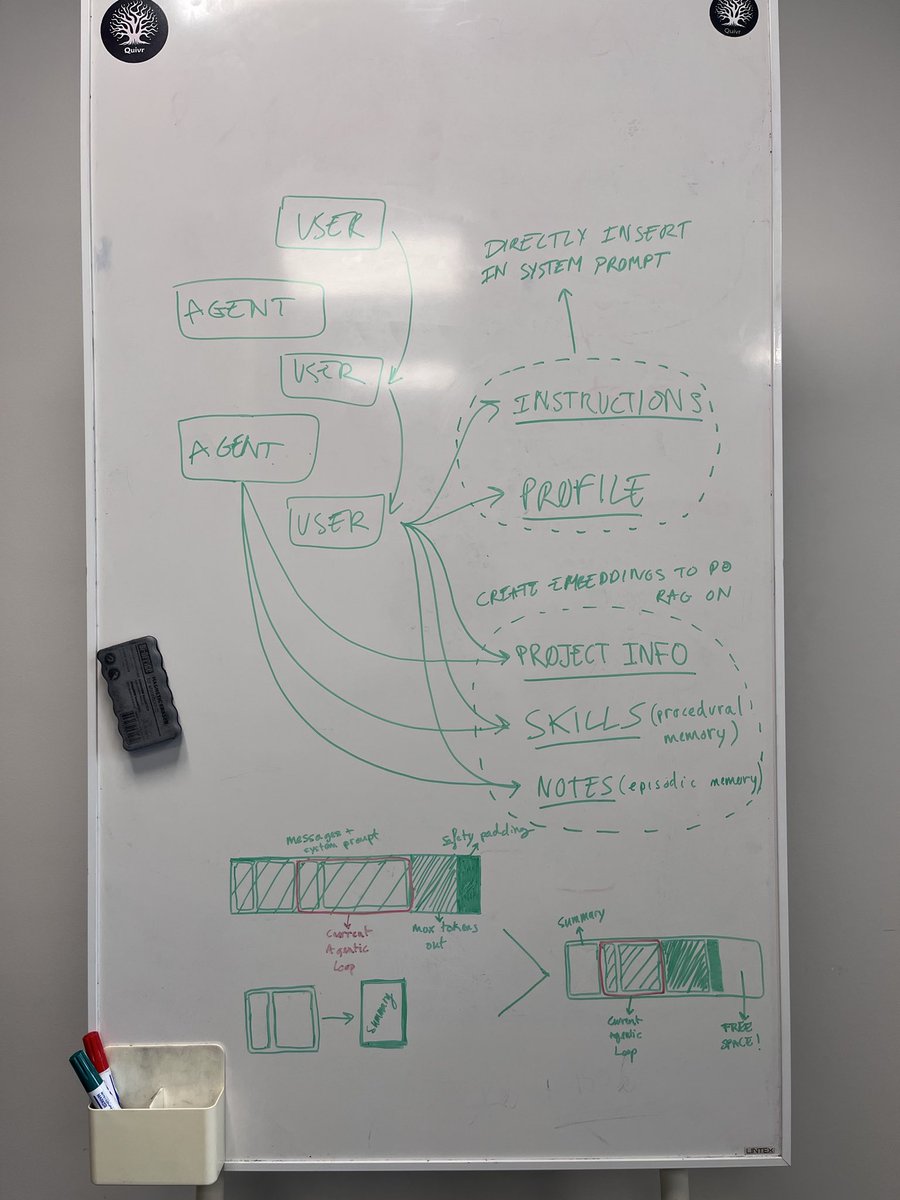 Quivr
Quivr
USER
AGENT
USER
AGENT
USER
DIRECTLY INSERT
IN SYSTEM PROMPT
INSTRUCTIONS
PROFILE
CREATE EMBEDDINGS TO DO
RAG ON
PROJECT INFO
SKILLS (procedural
memory)
NOTES (episodic memory)
messages +
system prompt
Safety padding
Current
Agentic
Loop
max tokens
out
Summary
Summary
Current
Agentic
Loop
FREE
SPACE!
LINTEX